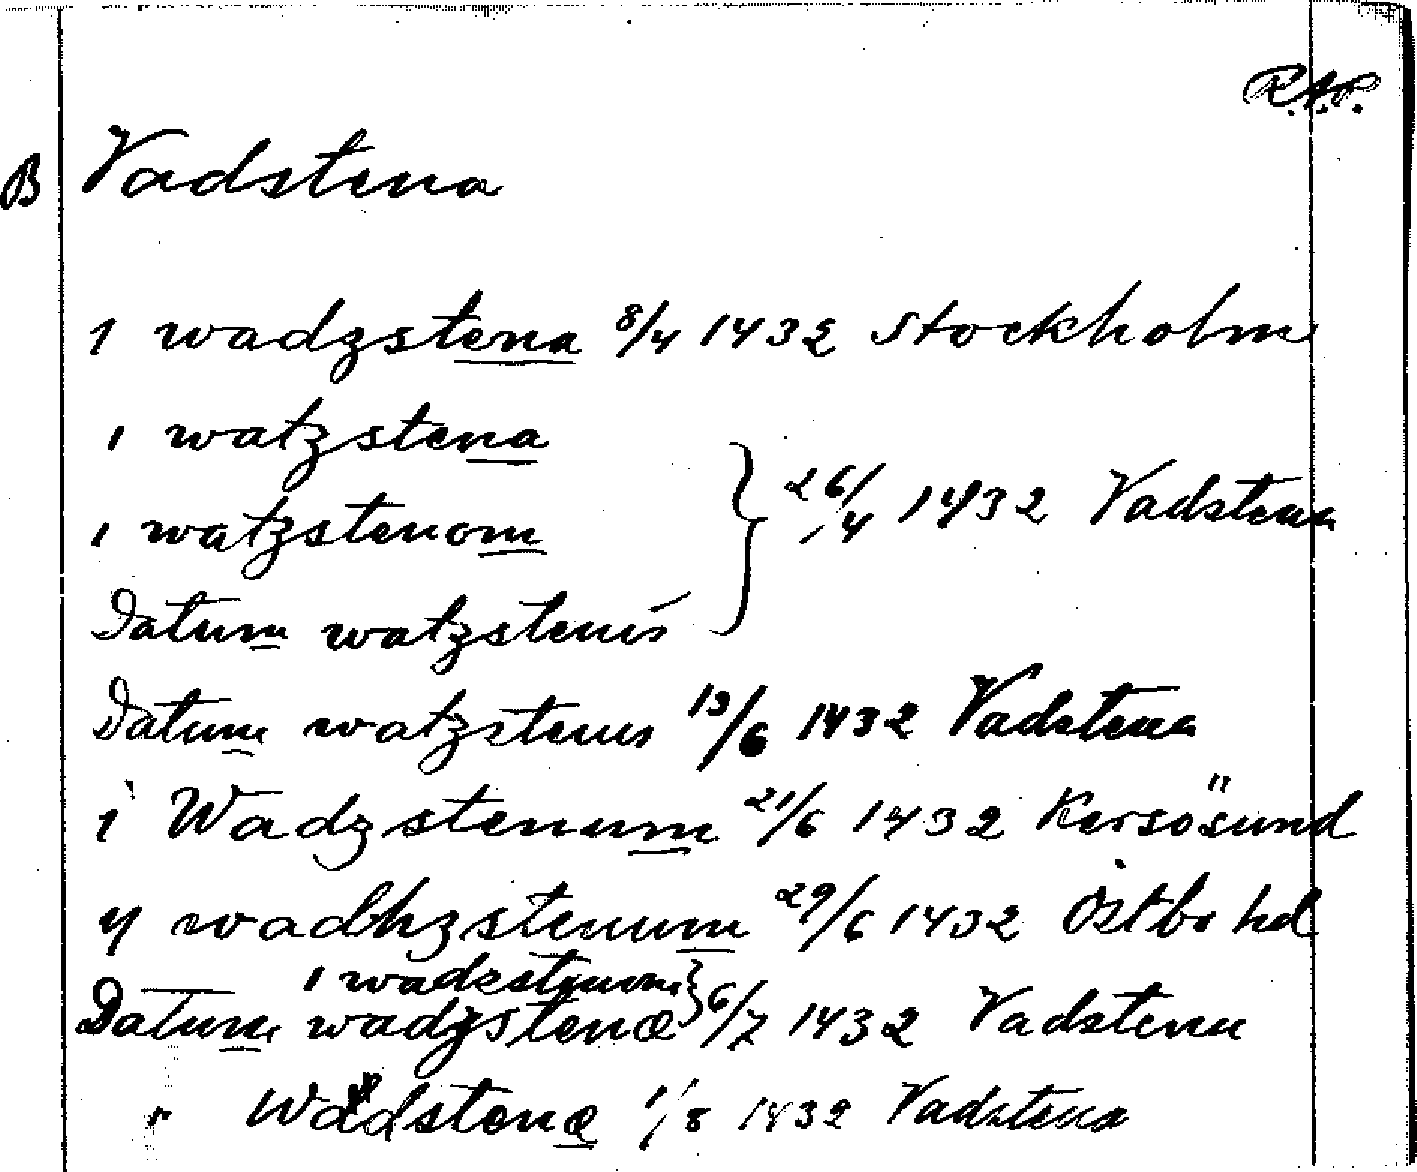 R.A.P.
B Vadstena
i wadzstena 8/4 1432 Stockholm
i watzstena
i watzstenom } 26/4 1432 Vadstena
Datum watzstenis
Datum watzstenis 13/6 1432 Vadstena
i Wadzstenum 21/6 1432 Kersösund
y wadhzstenum 29/6 1432 Östbo hd
i wadzstenom }
Datum wadzstene 6/7 1432 Vadstena
" Wadstene 1/8 1432 Vadstena